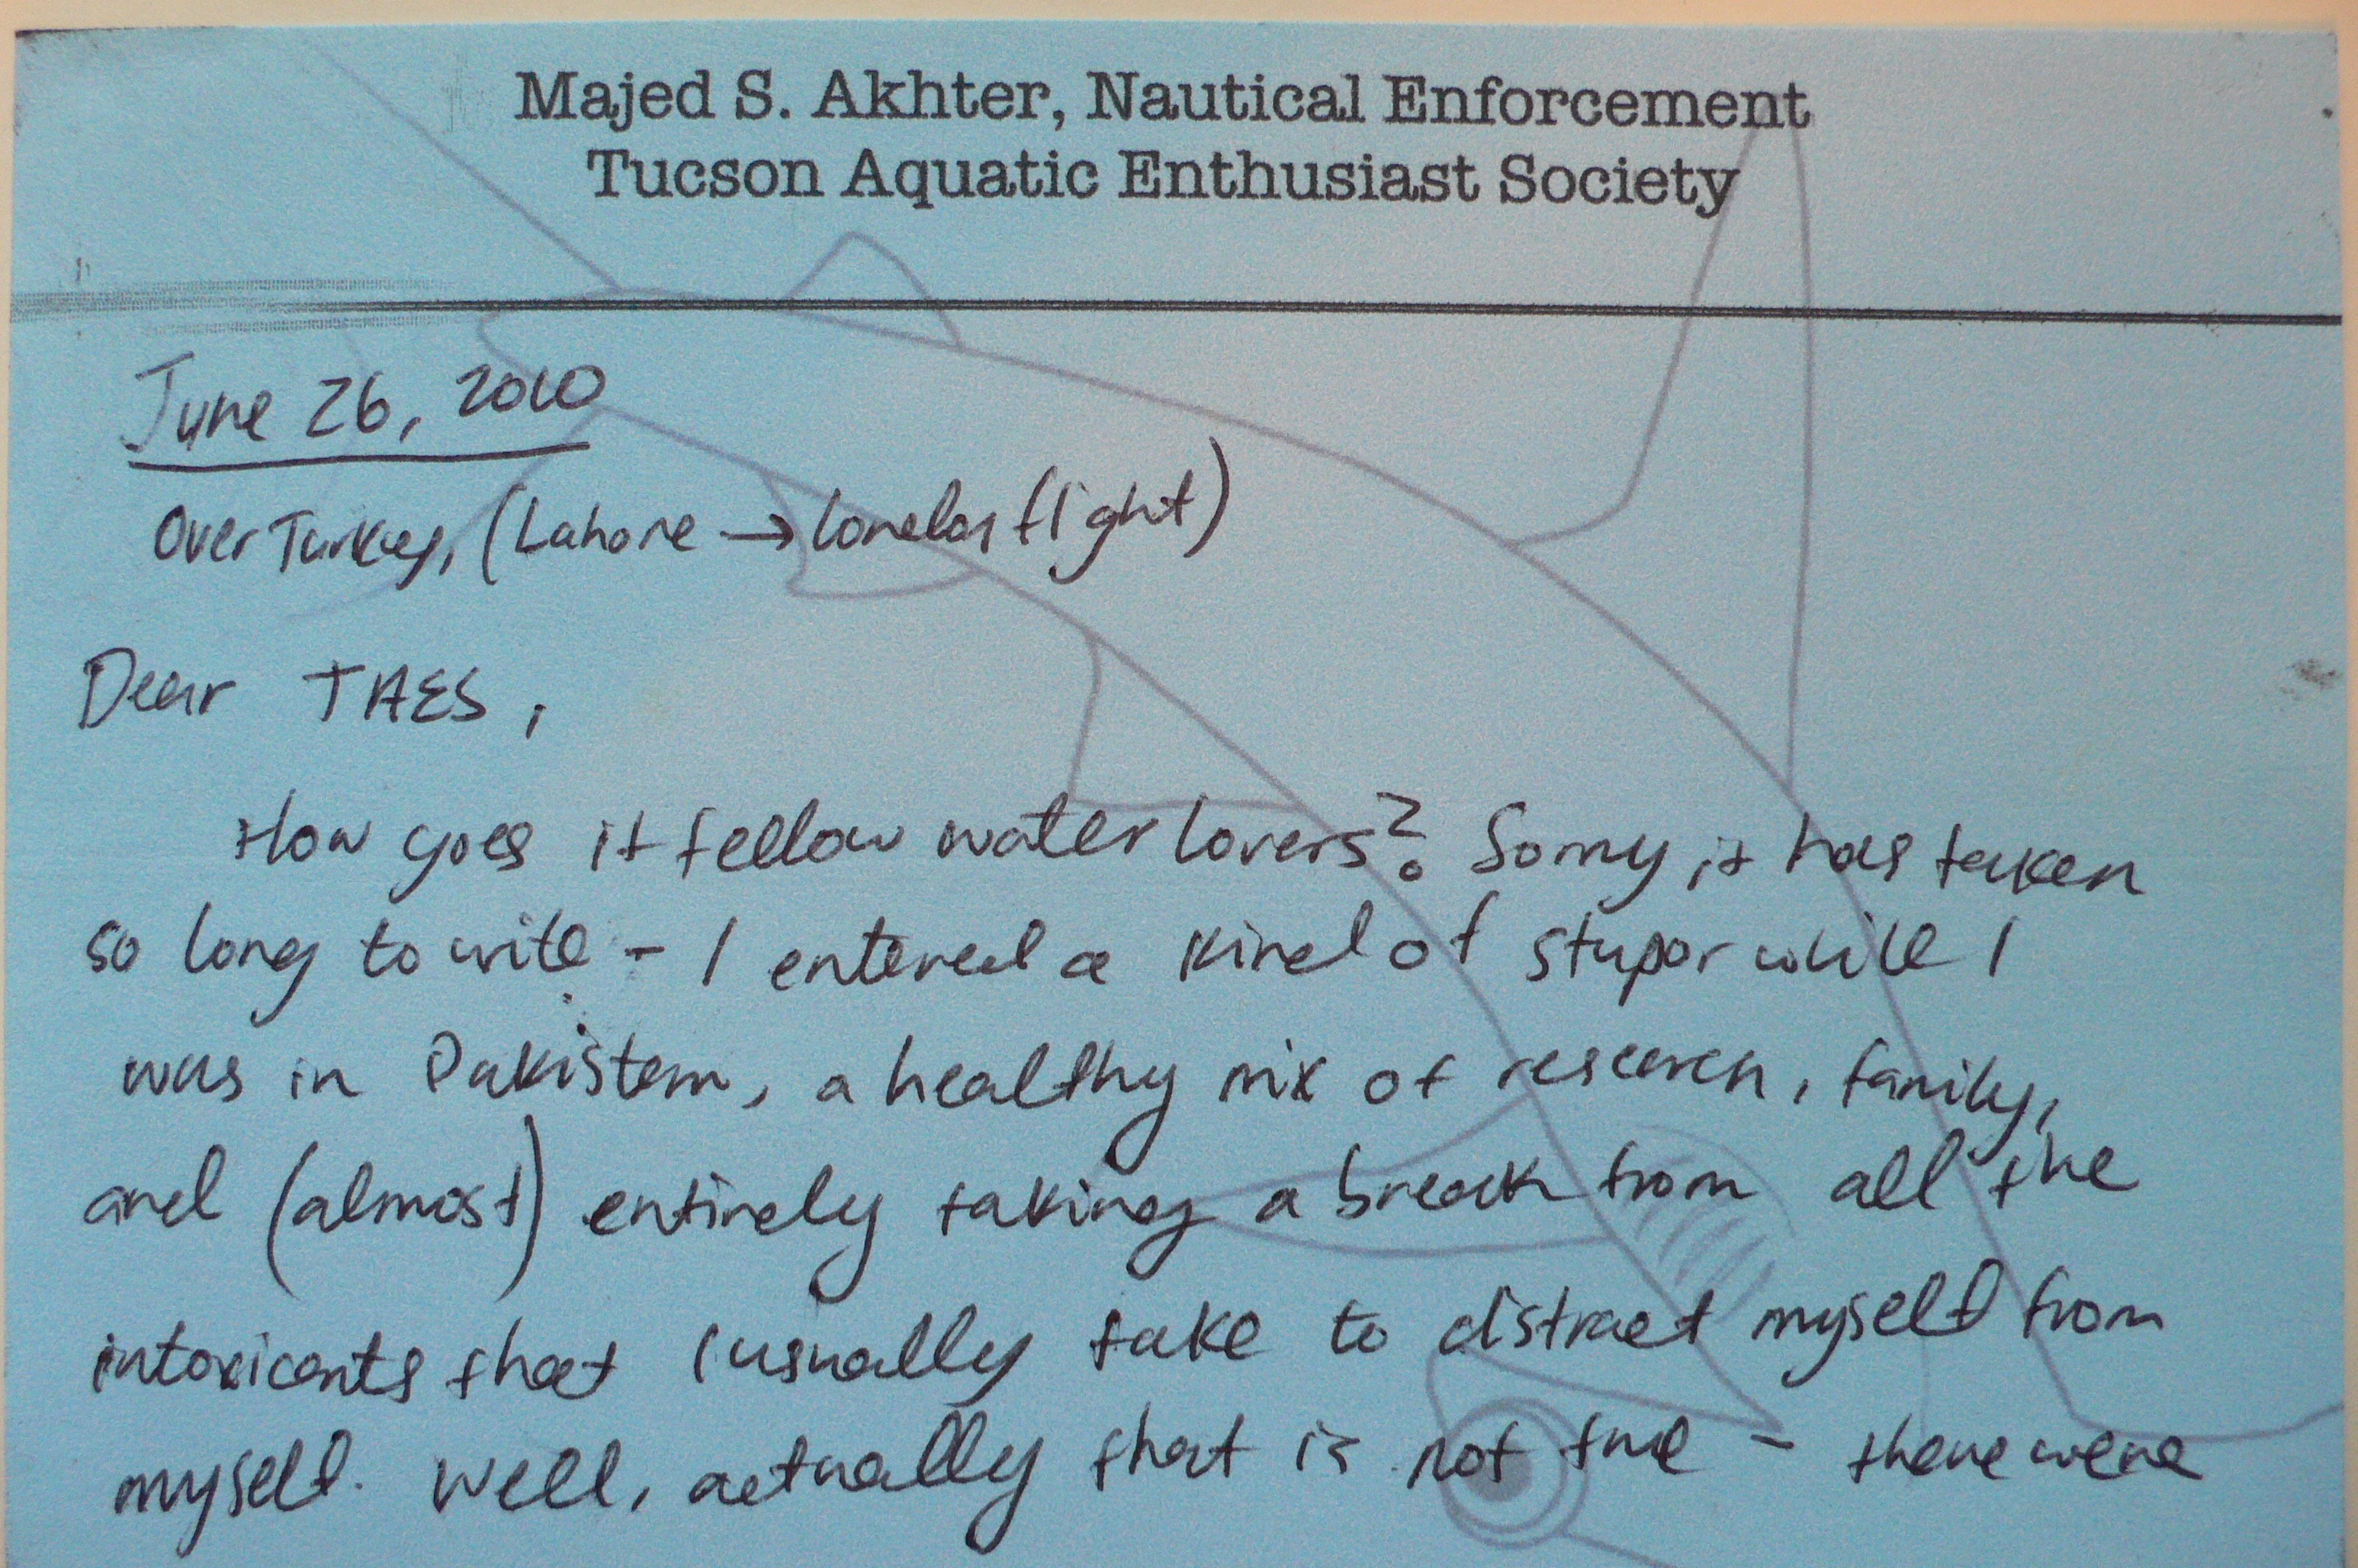 Majed S. Akhter, Nautical Enforcement
Tucson Aquatic Enthusiast Society
June 26, 2010
Over Turkey, (Lahore → London flight)
Dear TAES,
How goes it fellow water lovers? Sorry it has taken
so long to write - I entered a kind of stupor while I
was in Pakistan, a healthy mix of research, family,
and (almost) entirely taking a break from all the
intoxicants that I usually take to distract myself from
myself. Well, actually that is not true - there were